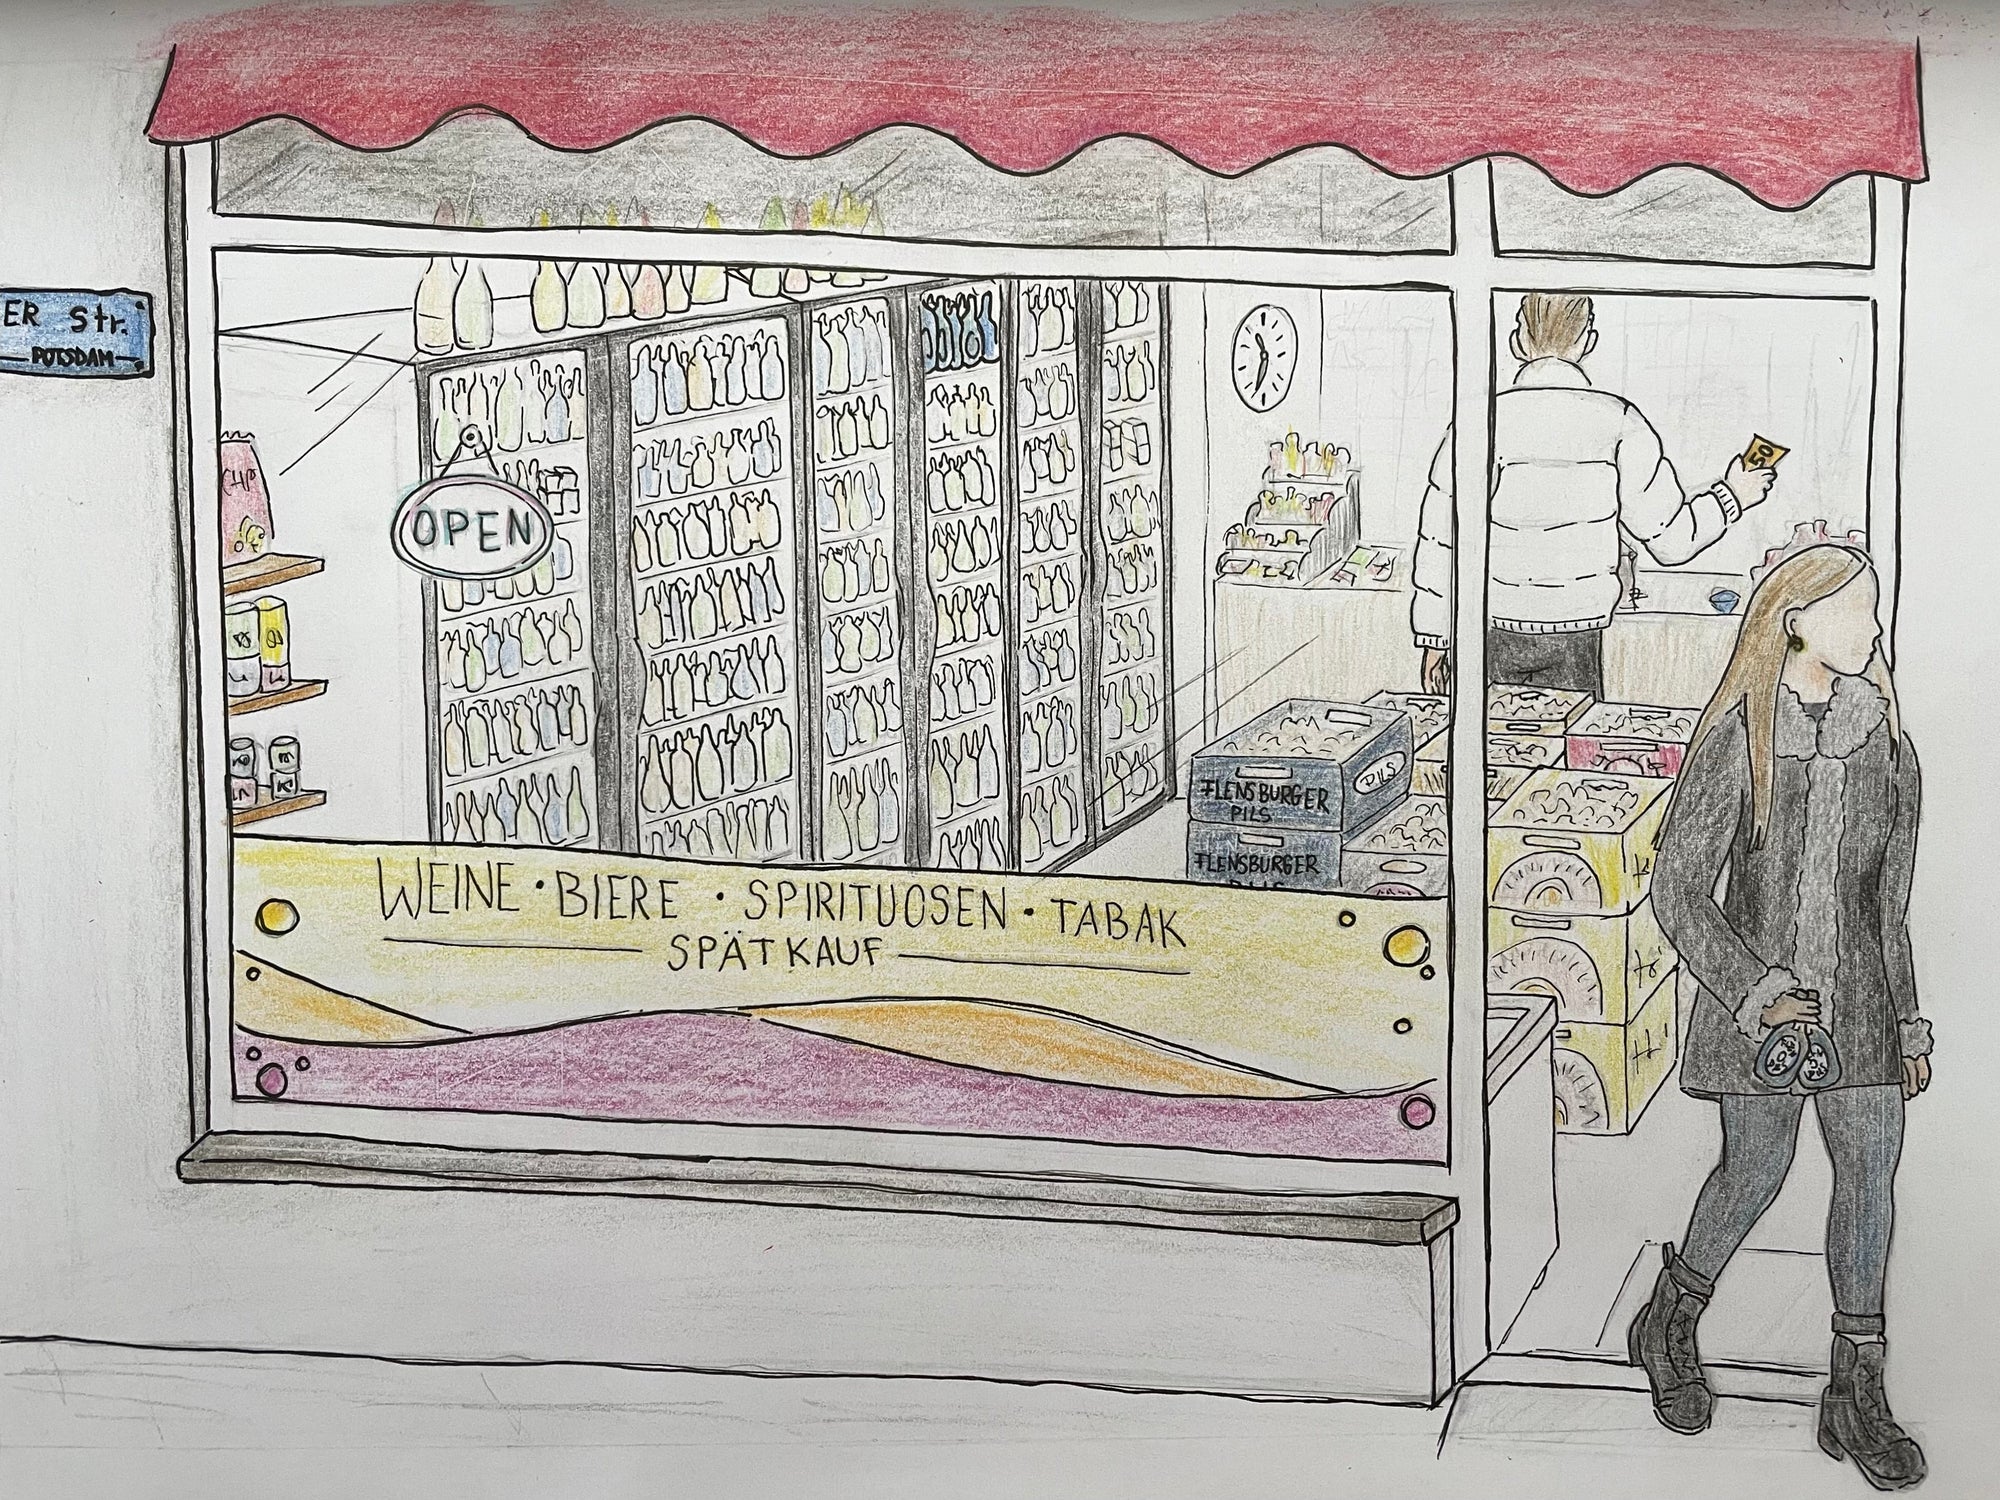 ER Str.
POTSDAM
OPEN
50
PILS
FLENSBURGER
PILS
FLENSBURGER
PILS
WEINE · BIERE · SPIRITUOSEN · TABAK
SPÄTKAUF